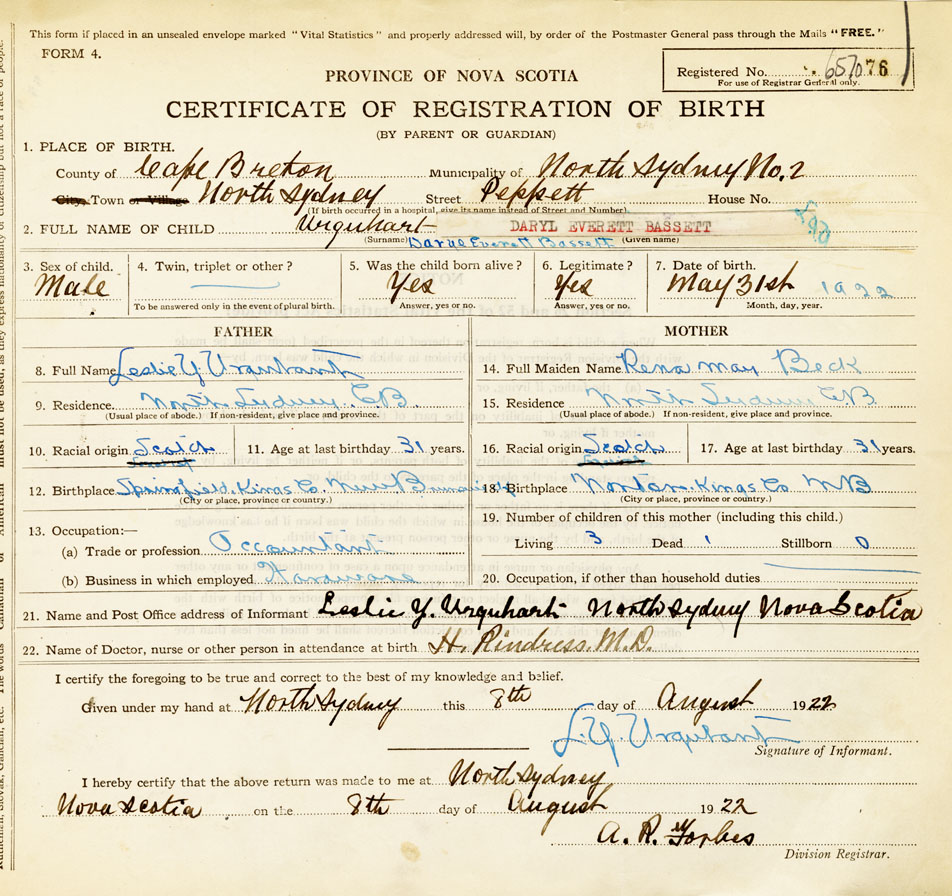 This form if placed in an unsealed envelope marked "Vital Statistics" and properly addressed will, by order of the Postmaster General pass through the Mails "FREE."
FORM 4.
Registered No. 657076
For use of Registrar General only.
PROVINCE OF NOVA SCOTIA
CERTIFICATE OF REGISTRATION OF BIRTH
(BY PARENT OR GUARDIAN)
1. PLACE OF BIRTH.
County of Cape Breton Municipality of North Sydney No. 2
City, Town or Village North Sydney Street Peppett House No.
(If birth occurred in a hospital, give its name instead of Street and Number).
2. FULL NAME OF CHILD Urquhart DARYL EVERETT BASSETT
(Surname) Daryl Everett Bassett (Given name)
3. Sex of child. 4. Twin, triplet or other? 5. Was the child born alive? 6. Legitimate? 7. Date of birth.
Male Yes Yes May 31st 1922
To be answered only in the event of plural birth. Answer, yes or no. Answer, yes or no. Month, day, year.
FATHER MOTHER
8. Full Name Leslie Y Urquhart 14. Full Maiden Name Rena May Beck
9. Residence. North Sydney C.B. 15. Residence North Sydney CB
(Usual place of abode.) If non-resident, give place and province. (Usual place of abode.) If non-resident, give place and province.
10. Racial origin Scotch 11. Age at last birthday 31 years. 16. Racial origin Scotch 17. Age at last birthday 31 years.
12. Birthplace Springfield, Kings Co. New Brunswick 18. Birthplace Norton. Kings Co NB
(City or place, province or country.) (City or place, province or country.)
13. Occupation:— 19. Number of children of this mother (including this child.)
(a) Trade or profession Accountant Living 3 Dead 1 Stillborn 0
(b) Business in which employed Hardware 20. Occupation, if other than household duties
21. Name and Post Office address of Informant Leslie Y. Urquhart North Sydney Nova Scotia
22. Name of Doctor, nurse or other person in attendance at birth H. Rindress. M.D.
I certify the foregoing to be true and correct to the best of my knowledge and belief.
Given under my hand at North Sydney this 8th day of August 1922
L. Y. Urquhart
Signature of Informant.
I hereby certify that the above return was made to me at North Sydney
Nova Scotia on the 8th day of August 1922
A. R. Forbes
Division Registrar.